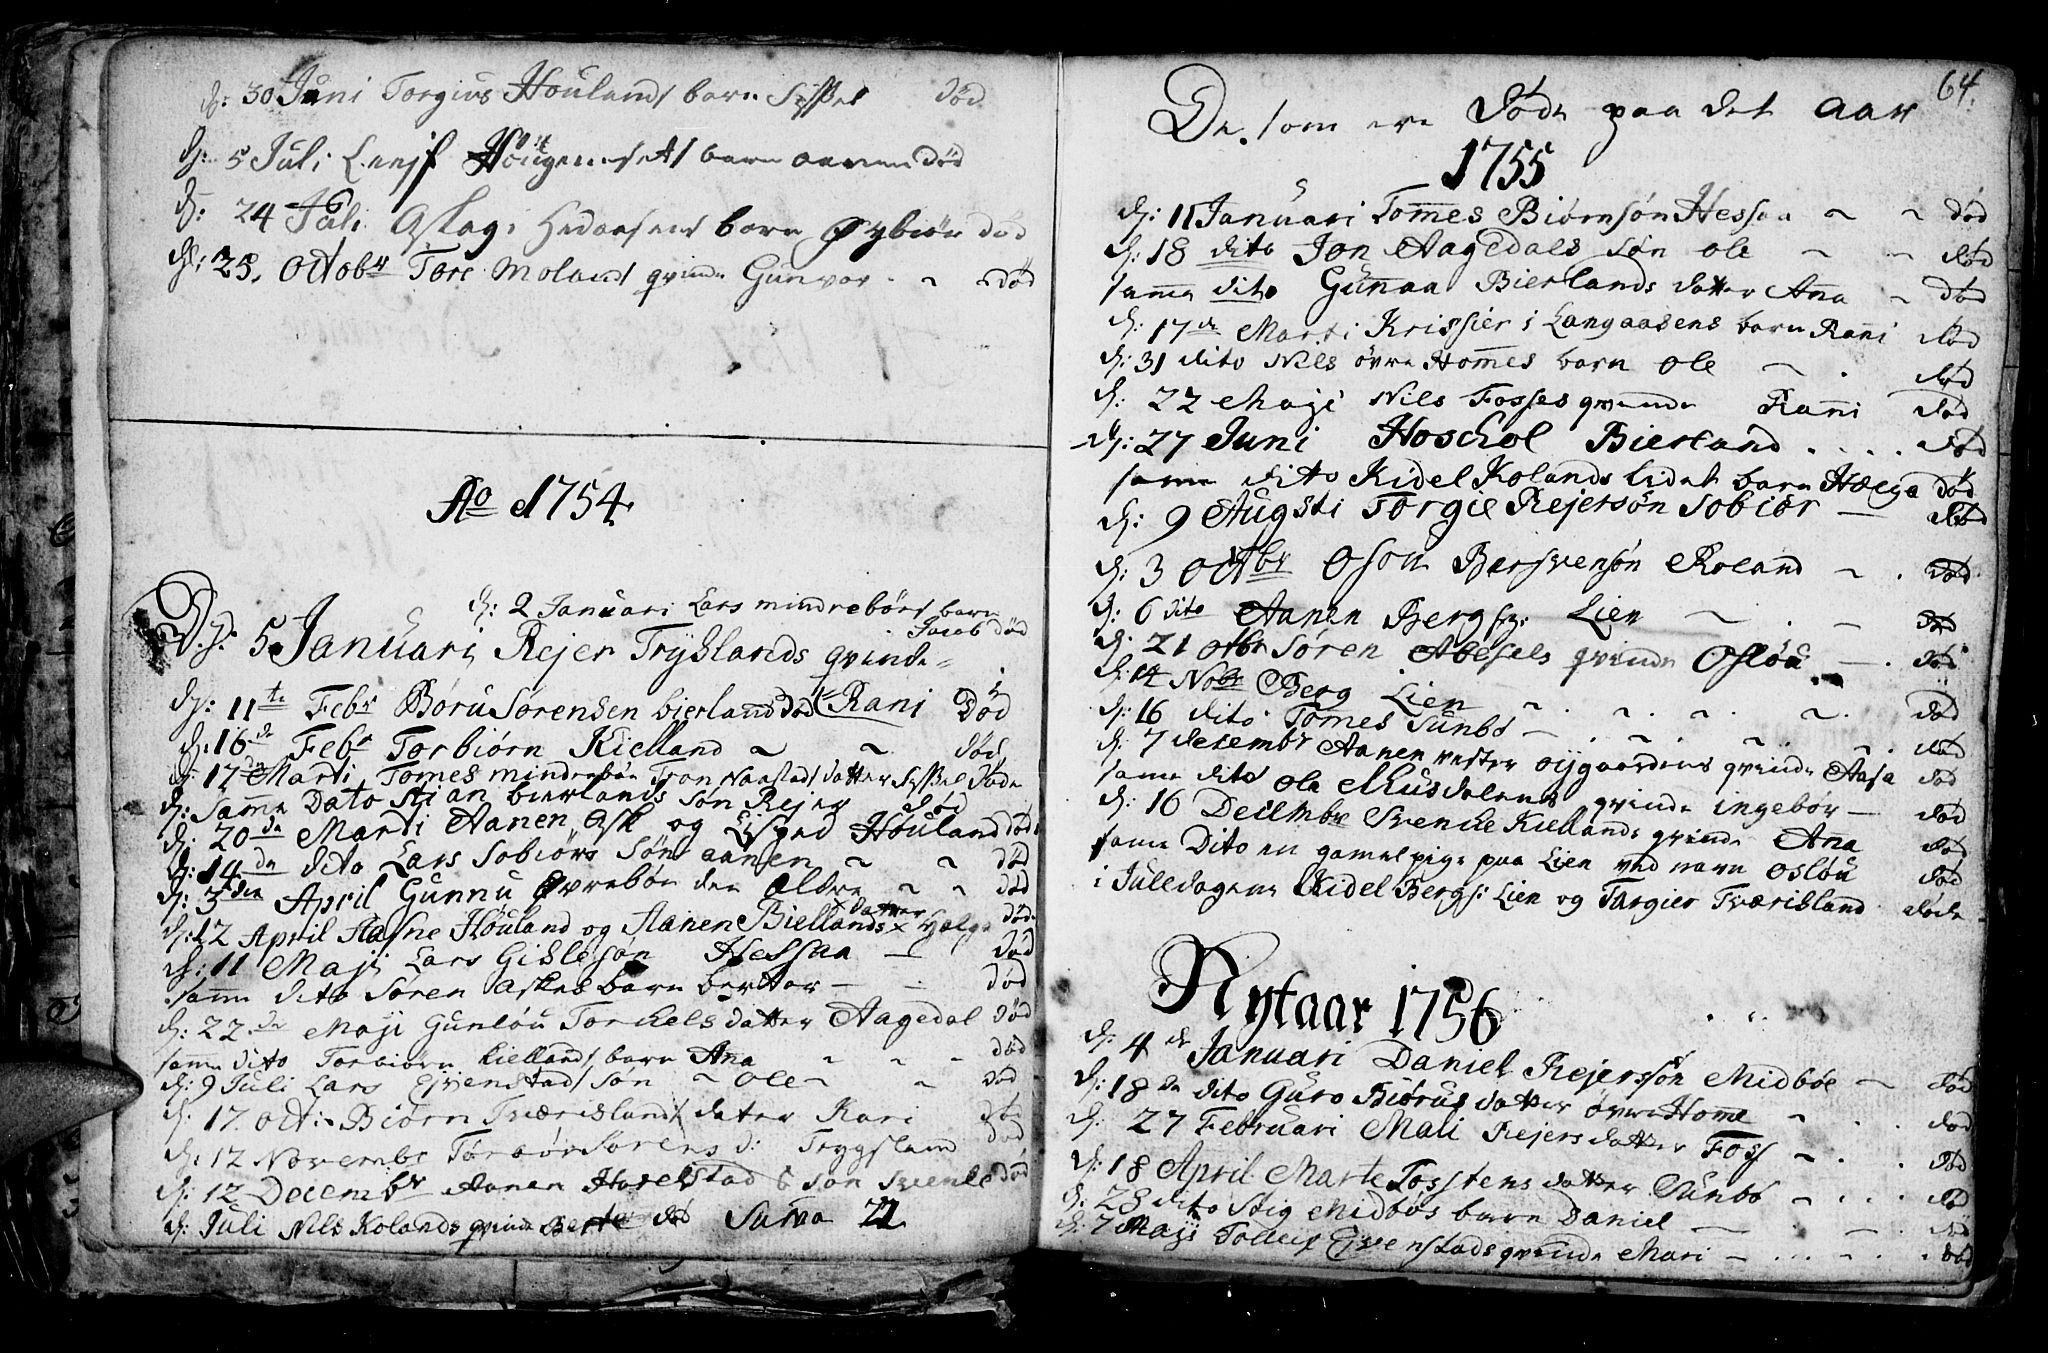 d: 30 Juni Torgius Houlands barn Sissel død
d: 5 Juli Leejf barn aanen død
d: 24 Juli Aslag barn Øybiør død
d: 25. Octobr Tore Molands qvinde Gunvor - ~ død
Ao 1754
d: 2 Januari Lars mindrebørs barn
Jacob død
D. 5 Januari Rejer Tryslands qvinde =
d: 11te Febr Børu Sørensen bierland død = Rani død
d: 16de Febr Torbiørn Kielland ~ ~ død
d: 17de Marti Tomes mindrebøe Tron datter Sissel døde
d: Samme Dato Stian bierlands søn Rejer død
d: 20de Marti Aanen Ask og Houland døde
d: 14de dito Lars Sobiørs søn aanen ~ ~ død
d: 3den April Gunnu Øvrebøe den Ældre ~ ~ død
d: 12 April Aasne Houland og Aanen Biellands datter Hælge døde
d: 11 Maji Lars Gislesøn Hessaa — død
samme dito Søren Askes barn berthe — - død
d: 22de Maji Gunlou Torkels datter Aagedal død
samme dito Torbiørn Kiellands barn Ana ~ ~ ~ død
d: 9 Juli Lars Ejvenstads søn ~ Ole ~ ~ død
d: 17 Oct: Biørn Tværislands dater Kari død
d: 12 Novembr Torbør Sørens d: Trygsland død
d: 12 Decembr Aanen Harelstads søn Svenke død
d: Juli Nils Kolands qvinde Berte død Suma 22
64.
De som ere døde paa det aar
1755
d: 11 Januari Tomes Biørnsøn Hessaa ~ ~ død
d: 18 dito Jon Aagedals søn Ole - - død
samme dito Gunaa Bierlands datter Ana ~ død
d: 17de Marti Krissier i Langaasens barn Rani død
d: 31 dito Nils øvre Homes barn Ole ~ . død
d: 22 Maji Nils Fosses qvinde Rani død
d: 27 Juni Hoschol Bierland . . . . død
samme dito Kidel Kolands lidet barn Hælge død
d: 9 Augsti Torgie Rejersøn Sobiør — død
d: 3 Octbr Oson Bersvensøn Roland ~ . død
d: 6 dito Aanen Bergs: Lien ~ . - død
d: 21 Otbr Søren Abesels qvinde Oslou — . død
d: 14 Nobr Berg Lien
d: 16 dito Tomes Sunbø ~ . ~ . ~ . død
d: 7 decembr Aanen vester øygaardens qvinde Aasa død
samme dito Ole Musdalens qvinde ingebør — død
d: 16 Decembr Svenke Kiellands qvinde Ana død
samme Dito en gamel pige paa Lien ved navn Oslou død
i Juledagene Kidel Bergs: Lien og Targier Tværisland døde
Nytaar 1756
d: 4de Januari Daniel Rejersøn Midbøe ~ død
d: 18de dito Guro Biørus datter øvre Home ~ . . død
d: 27 Februari Mali Rejers datter Foss ~ . . død
d: 18 April Marte Tosstens datter Sunbø ~ . . . død
d: 28 dito Stig Midbøs barn Daniel — død
d: 7 Maji Tollef Ejvenstads qvinde Mari — død